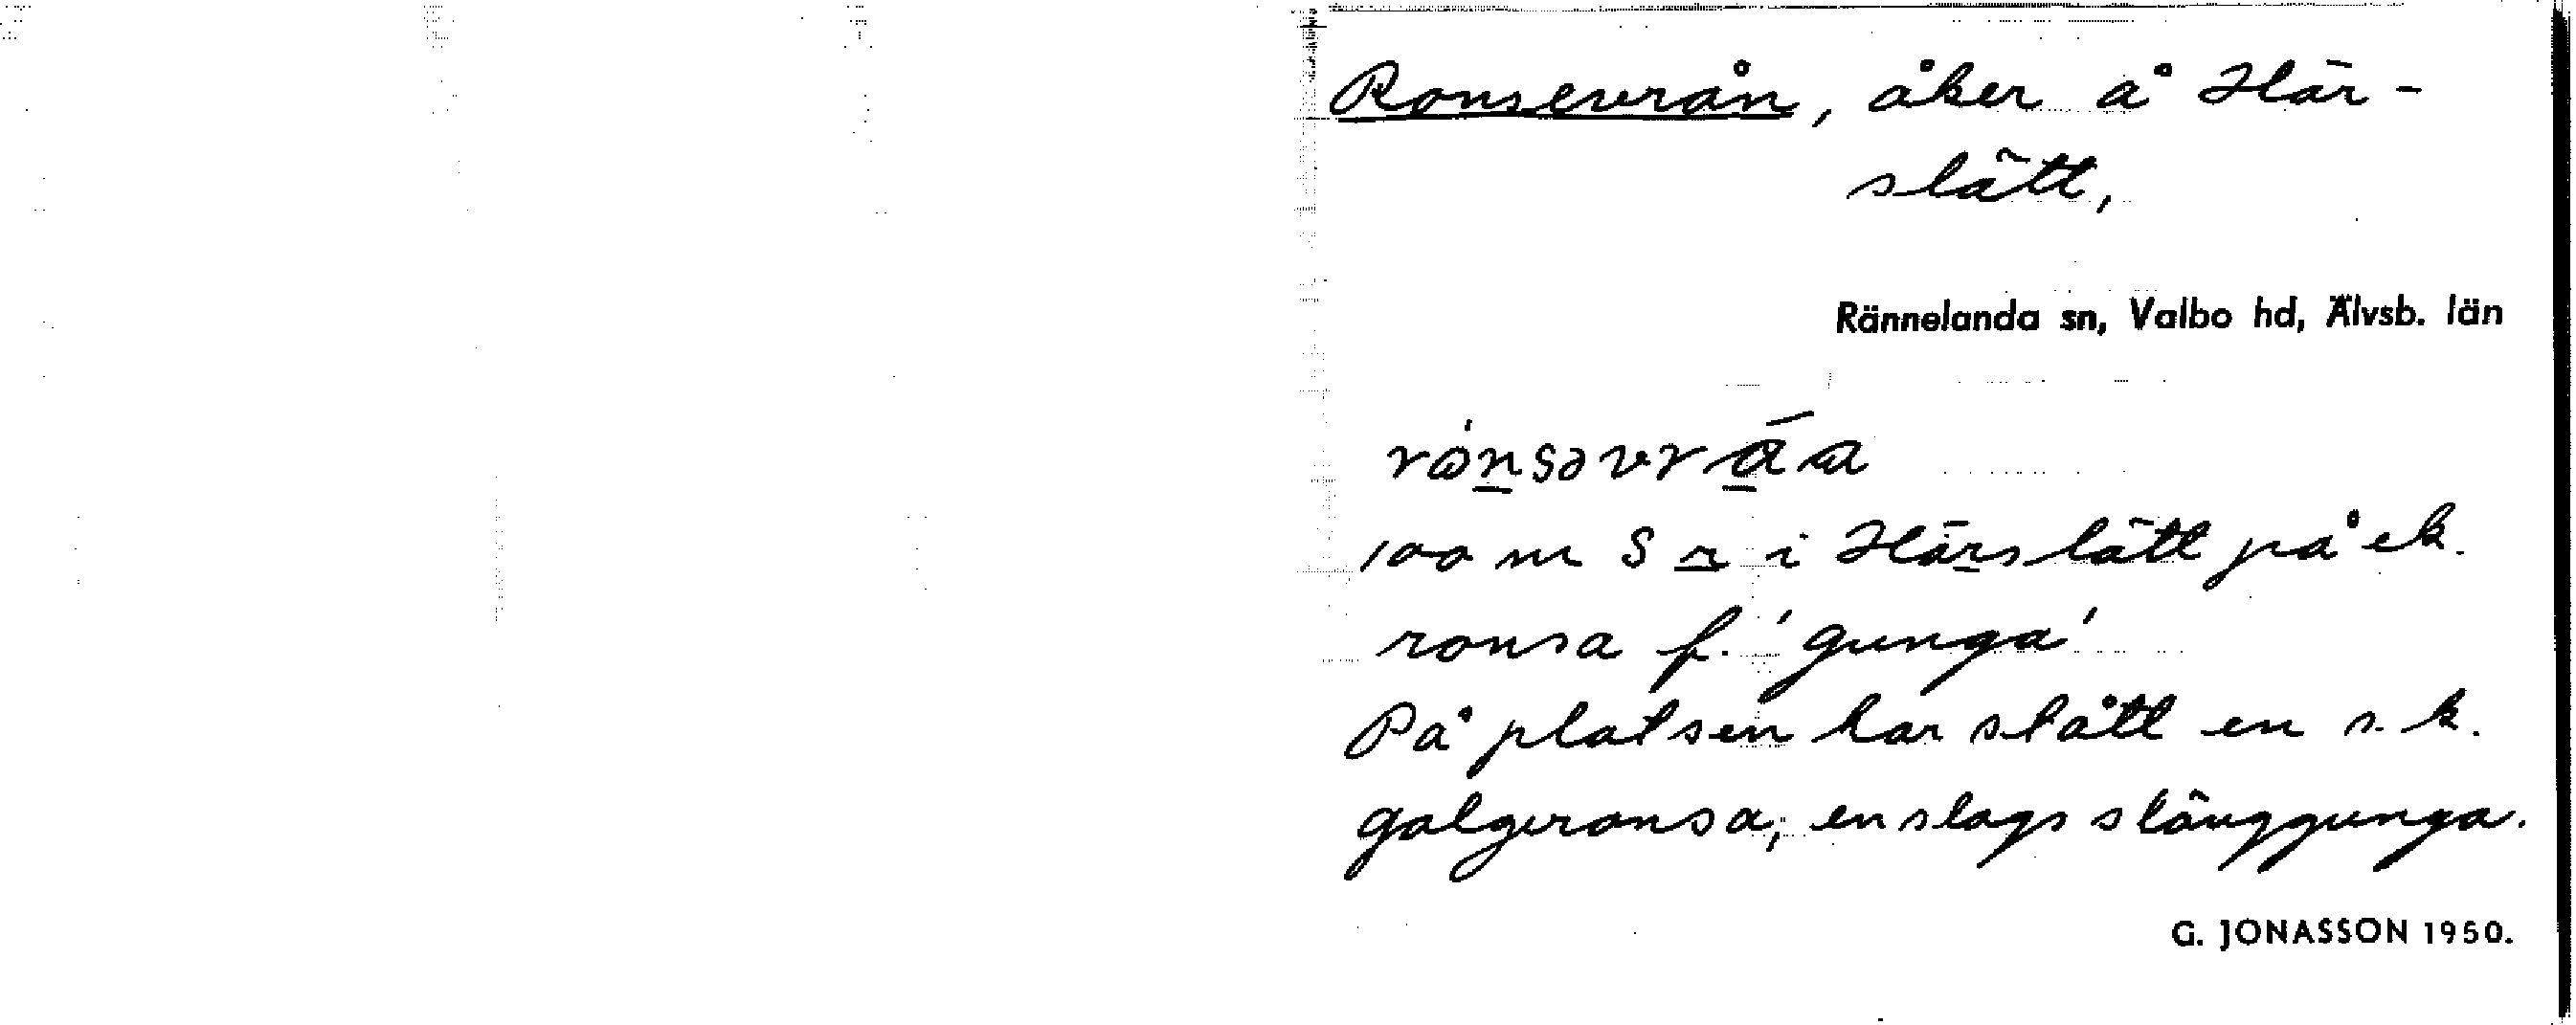 Ronsevrån, åker å Här-
slätt,
Rännelanda sn, Valbo hd, Älvsb. län
100 m S r i Härslätt på ek.
ronsa f. 'gunga'
På platsen har stått en s.k.
galgeronsa, en slags slänggunga.
G. JONASSON 1950.